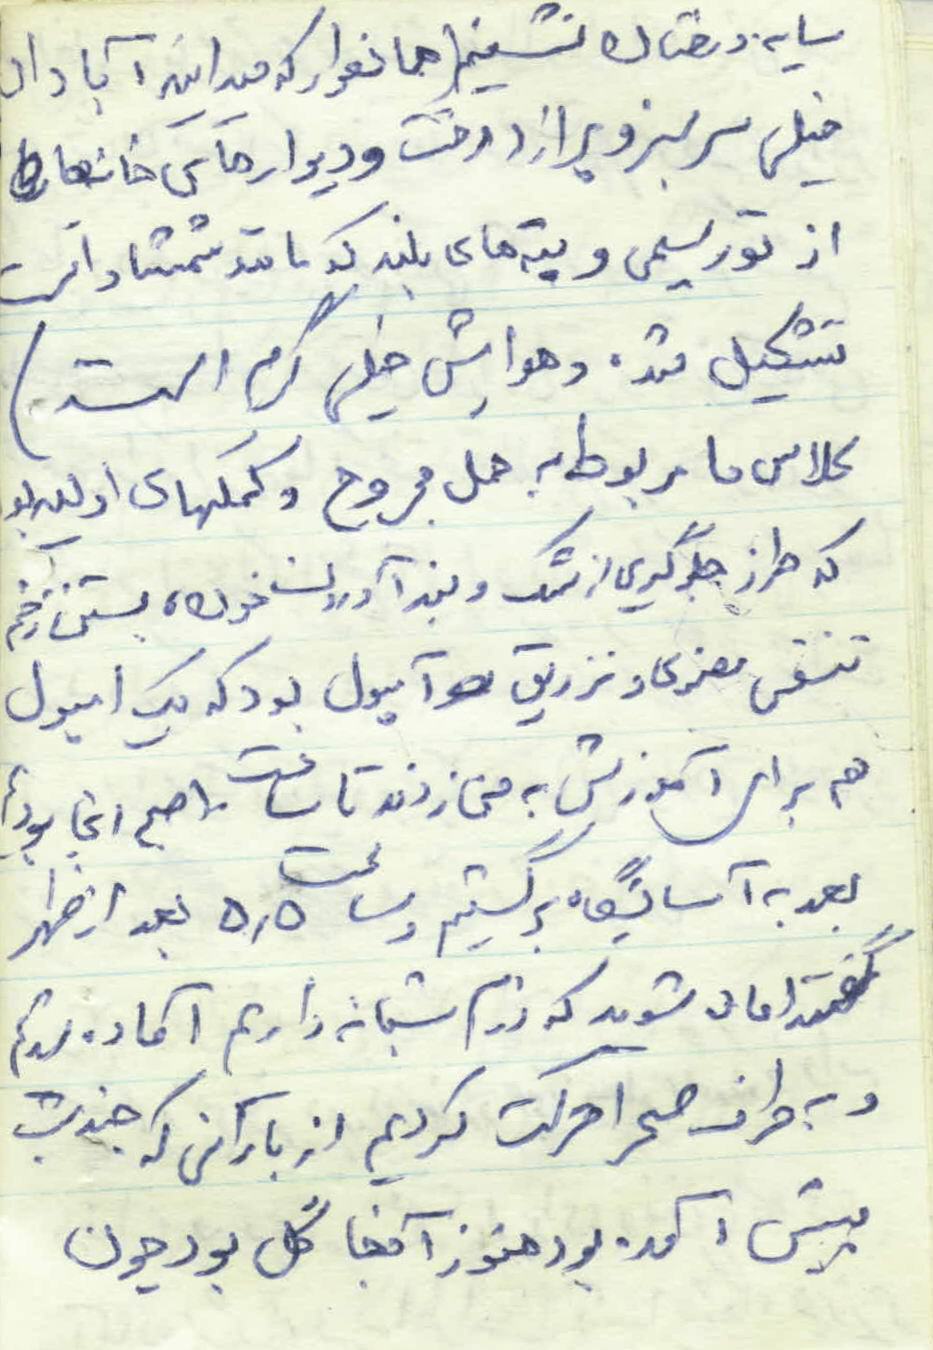 سایه درختان نشینیم (همانطور که میدانید آبادان
خیلی سرسبز و پر از درخت و دیوارهای خانه‌ها
از تور سیمی و بته‌های بلند که مانند شمشاد است
تشکیل شده و هوایش خیلی گرم است)
کلاس ما مربوط به حمل مجروح و کمکهای اولیه بود
که طرز جلوگیری از شک و بند آوردن خون، بستن زخم
تنفس مصنوعی و تزریق آمپول بود که یک امپول
هم برای آموزش به من زدند تا ساعت ۱۰ صبح انجا بودیم
بعد به آسایشگاه برگشتیم و ساعت ۵٫۵ بعد از ظهر
گفتند اماده شوید که رزم شبانه داریم آماده شدیم
و به طرف صحرا حرکت کردیم از بارانی که چند شب
پیش آمده بود هنوز آنجا گل بود چون